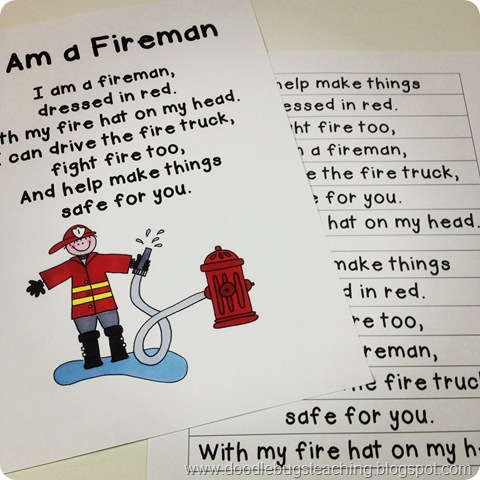 Am a Fireman
I am a fireman,
dressed in red.
th my fire hat on my head.
I can drive the fire truck,
fight fire too,
And help make things
safe for you.
help make things
essed in red.
ht fire too,
a fireman,
e the fire truck,
e for you.
hat on my head.
make things
d in red.
re too,
reman,
e fire truc
safe for you.
With my fire hat on my h
www.doodlebugsteaching.blogspot.com